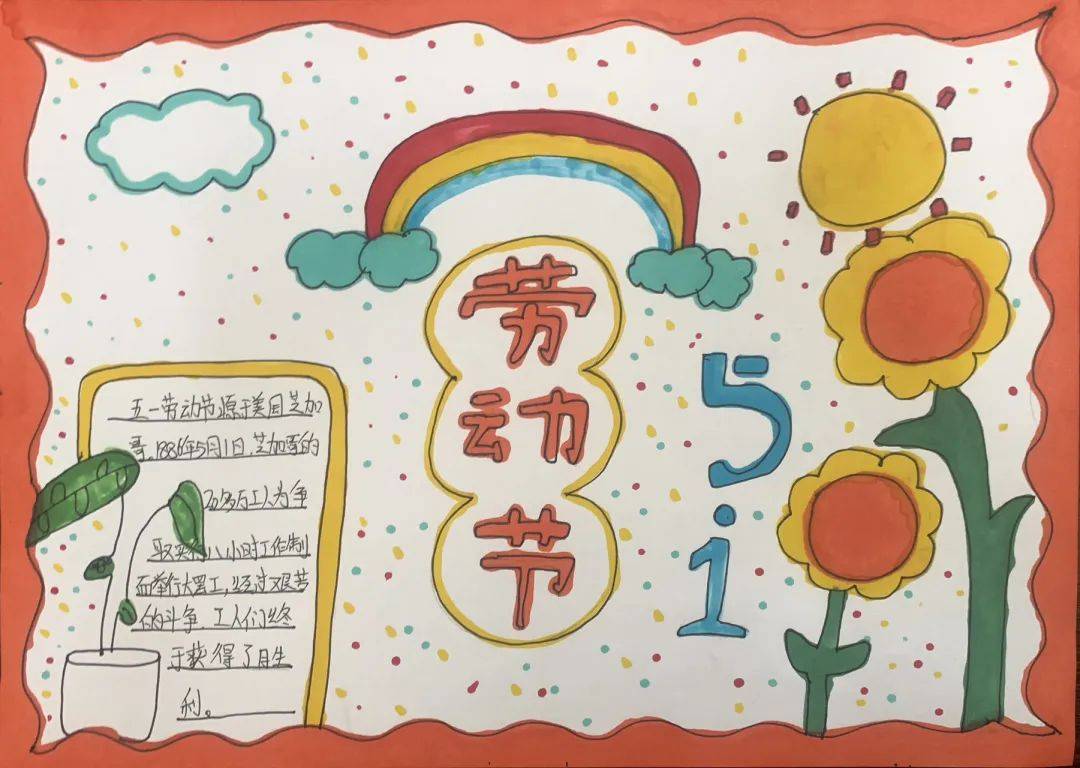 劳
动
节
5
1
五一劳动节源于美国芝加
哥.1886年5月1日.芝加哥的
万多万工人为争
取实行八小时工作制
而举行大罢工,经过艰苦
的斗争.工人们终
于获得了胜
利。